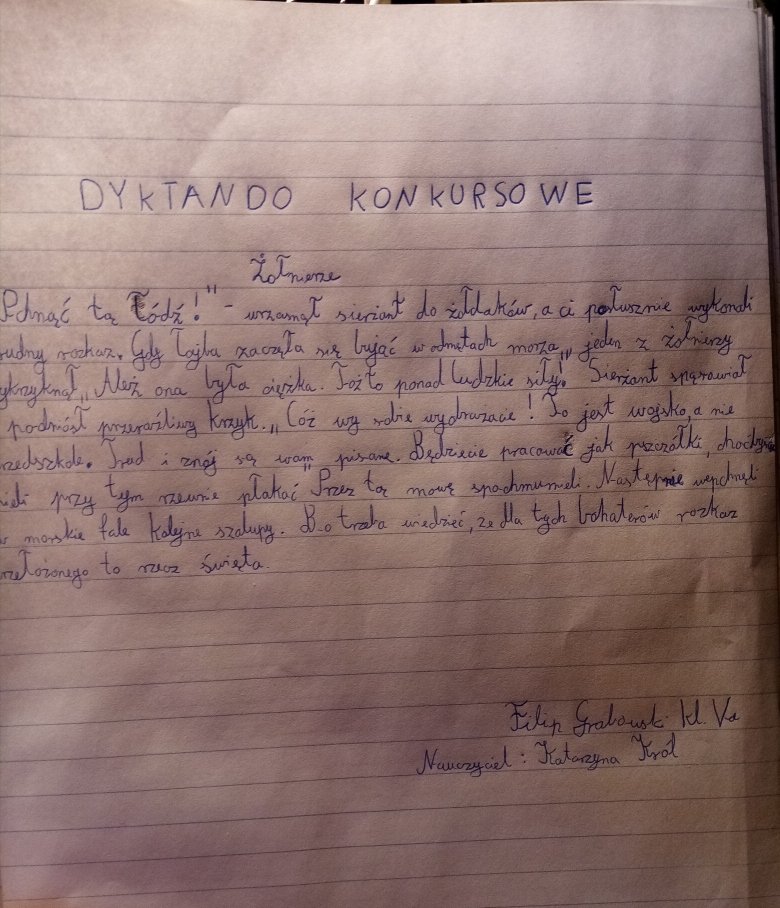 DYKTANDO KONKURSOWE
Żołnierze
Pchnąć tą łódź!" - wrzasnął sierżant do żołdaków, a ci posłusznie wykonali
rudny rozkaz. Gdy łajba zaczęła się bujać w odmętach morza„ jeden z żołnierzy
ykrzyknął „Ależ ona była ciężka. Toż to ponad ludzkie siły! Sierżant spąsowiał
podniósł przeraźliwy krzyk. „Cóż wy sobie wyobrażacie! To jest wojsko, a nie
rzedszkole. Trud i znój są wam„ pisane. Będziecie pracować jak pszczółki,
ieli przy tym rzewnie płakać Przez tą mowę spochmurnieli. Następnie wepchnęli
w morskie fale kolejne szalupy. Bo trzeba wiedzieć, że dla tych bohaterów rozkaz
rzełożonego to rzecz święta.
Filip Grabowski kl. Va
Nauczyciel: Katarzyna Król